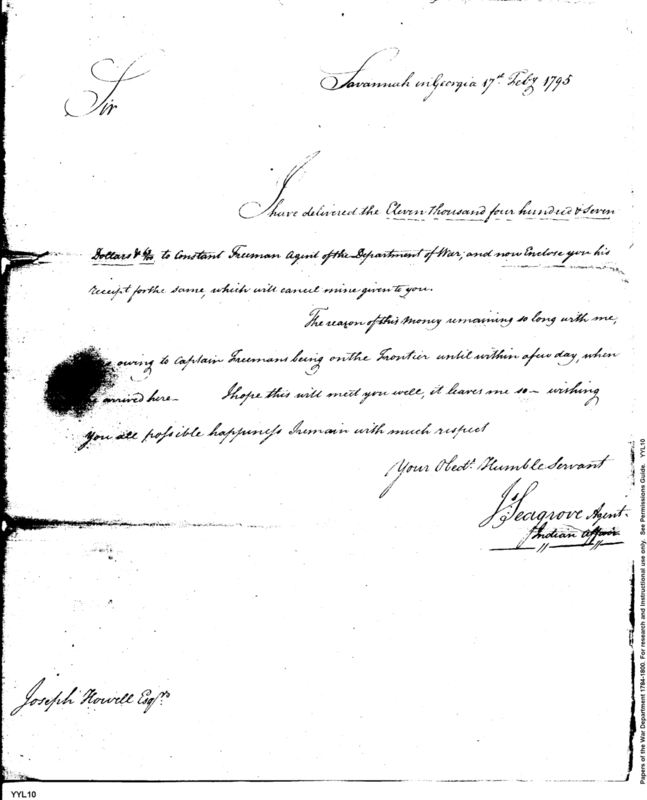 Savannah in Georgia 17th Feby 1795
Sir
I have delivered the Eleven thousand four hundred & Seven
Dollars & to Constant Freeman Agent of the Department of War; and now Enclose you his
receipt for the same, which will cancel mine given to you.
The reason of this Money remaining so long with me,
owing to Captain Freemans being on the Frontier until within a few day, when
arrived here — I hope this will meet you well, it leaves me so — wishing
you all possible happiness I remain with much respect
Your Obedt. Humble Servant
Js Seagrove Agent
Indian Affairs
Joseph Howell Esqr.
YYL10
Papers of the War Department 1784-1800. For research and instructional use only. See Permissions Guide. YYL10